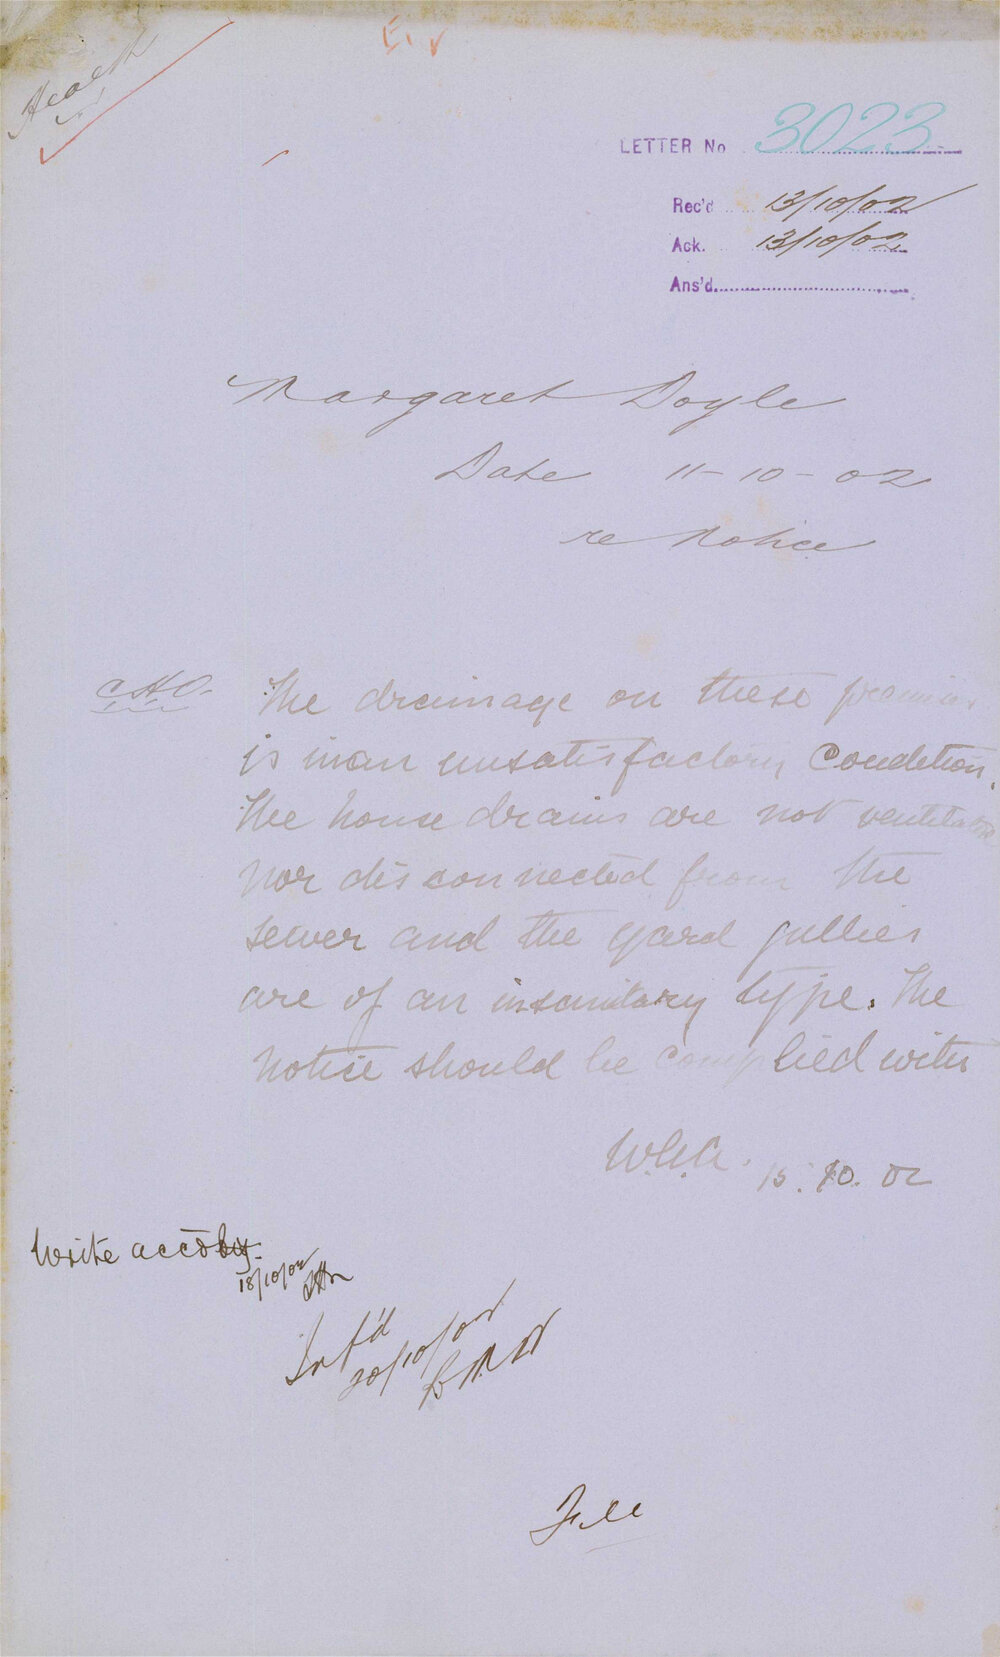 Health
E.
LETTER No 3023
Rec'd 13/10/02
Ack. 13/10/02
Ans'd
Margaret Doyle
Date 11-10-02
re Notice
CHO. The drainage on these premises
is in an unsatisfactory Condition.
The house drains are not ventilated
nor disconnected from the
sewer and the yard gullies
are of an insanitary type. The
notice should be complied with
W.G.A. 15.10.02
Write accdly.
18/10/02
Inf'd
20/10/02
File